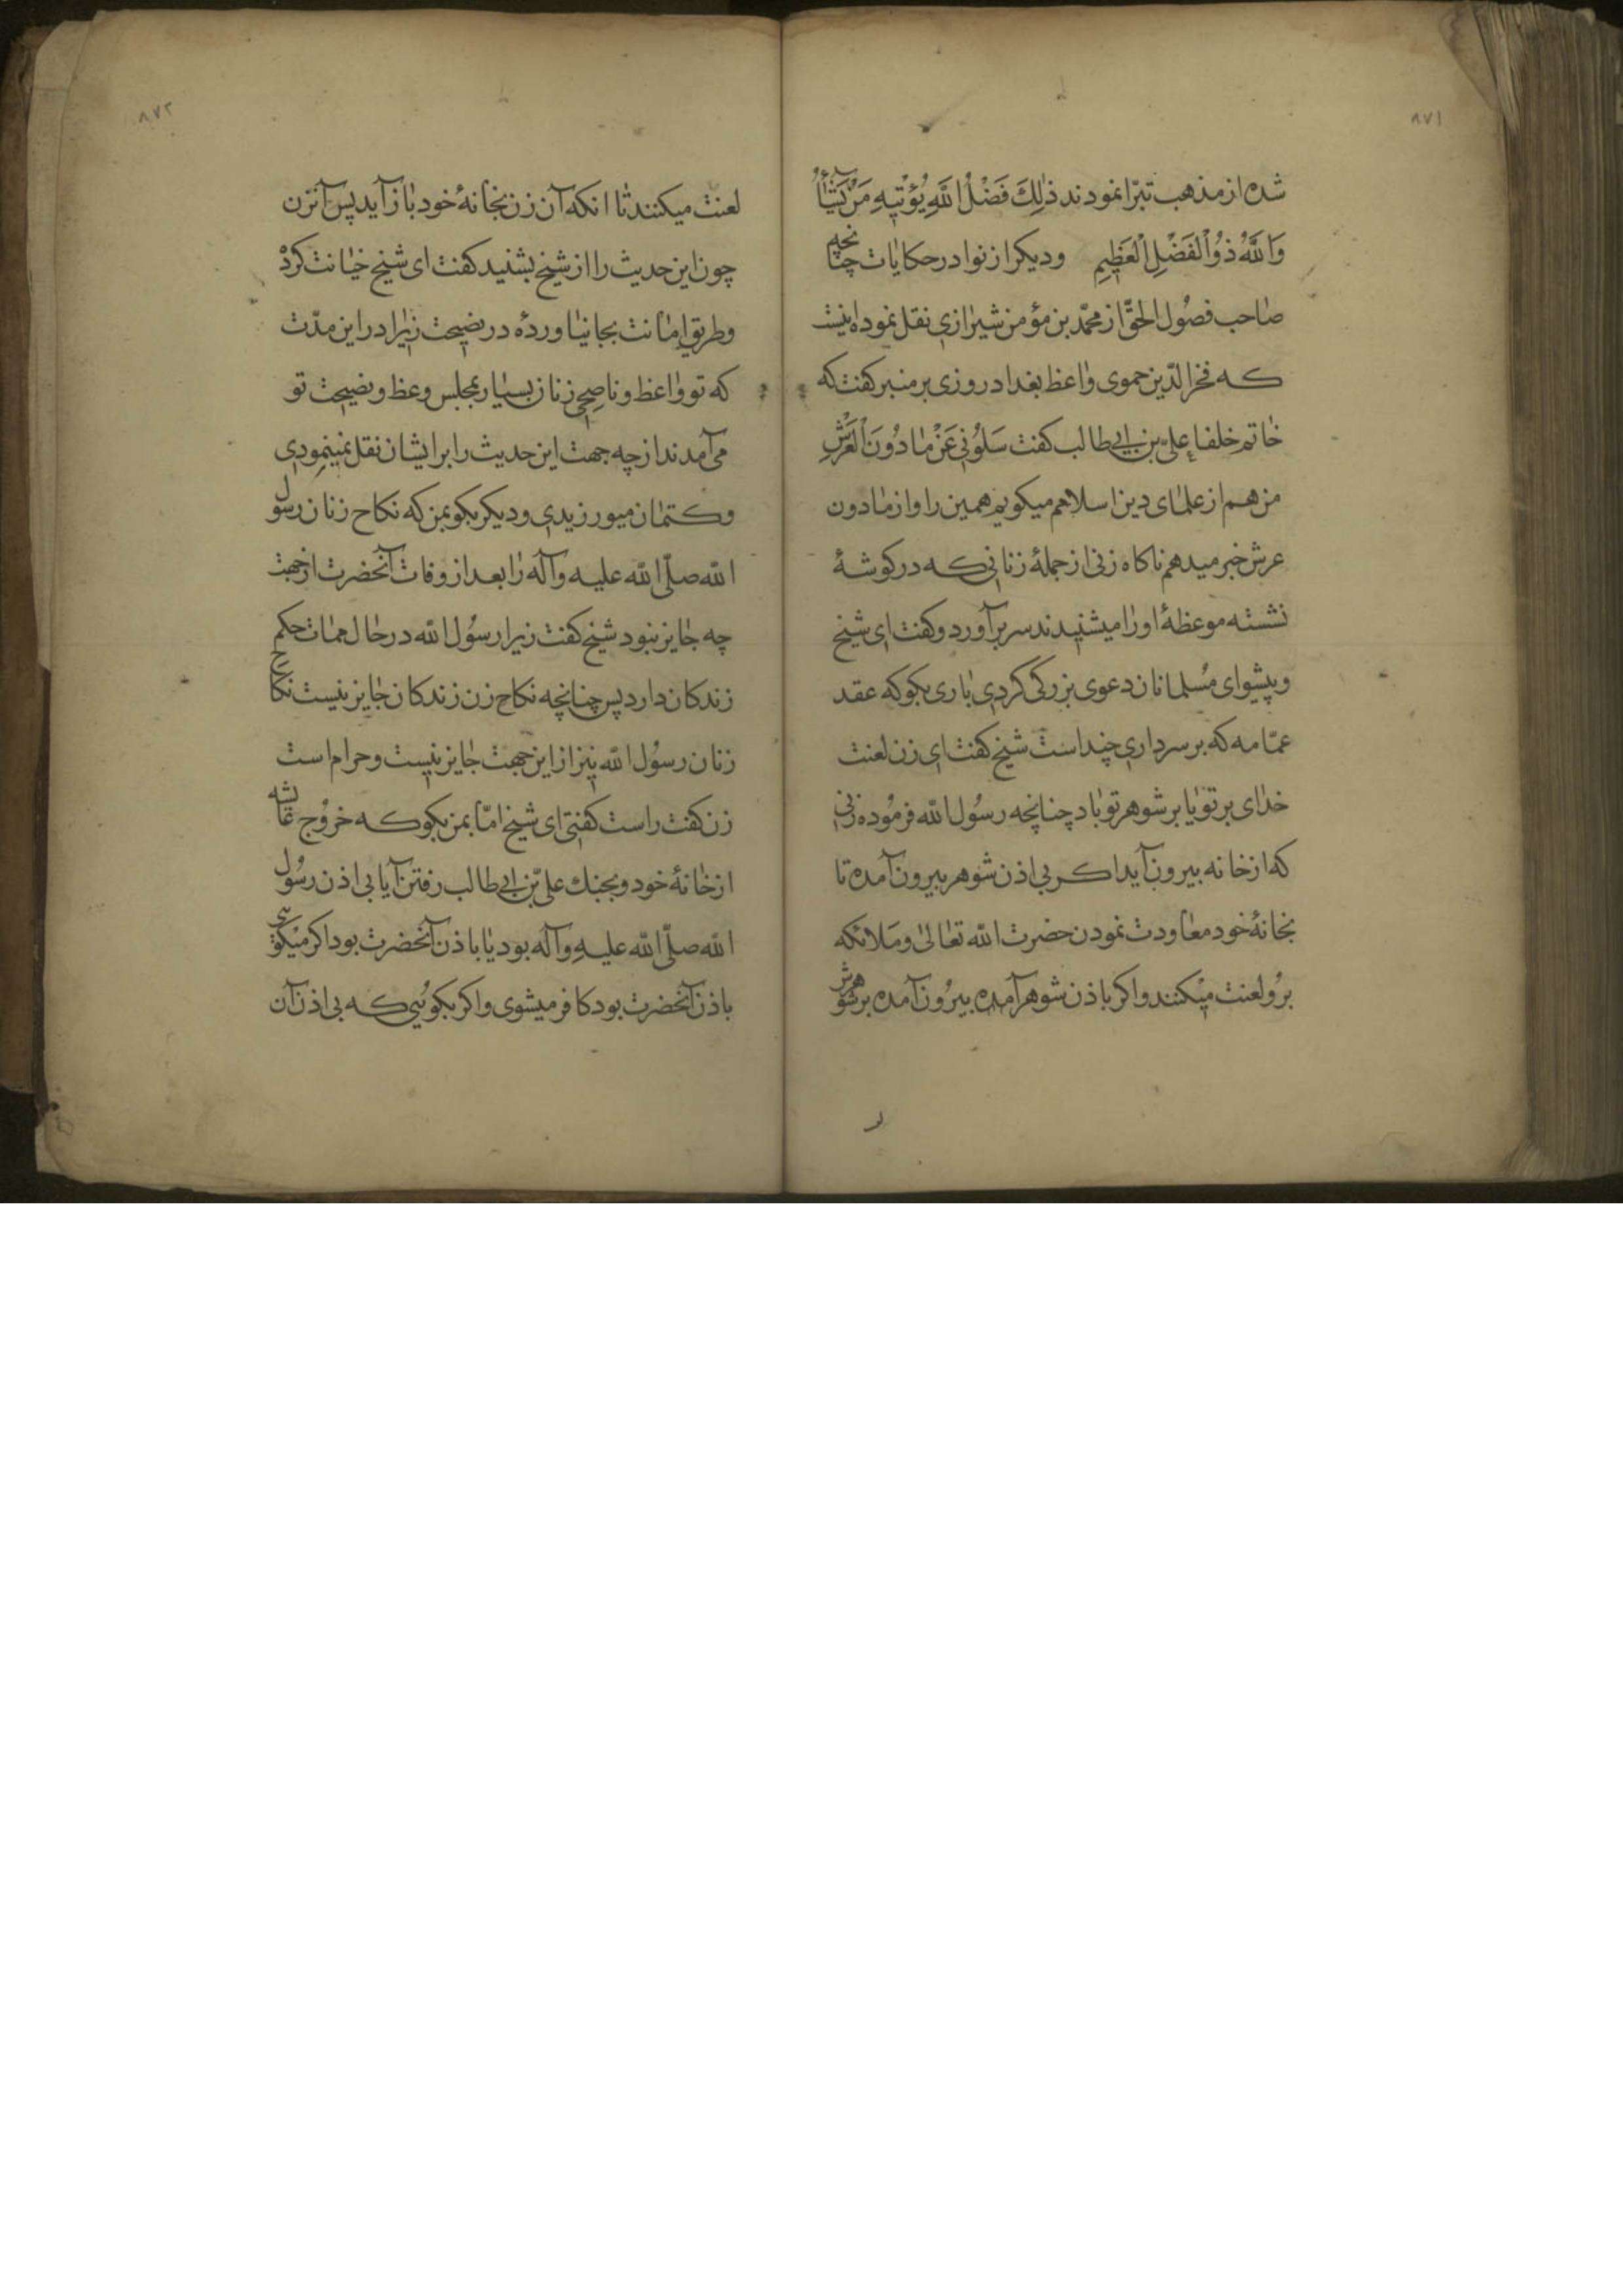 ۸۷۱
شده از مذهب تبرّا نمودند ذٰلِكَ فَضْلُ اللّٰهِ يُؤْتِيهِ مَنْ يَشَآءُ
وَاللّٰهُ ذُو الْفَضْلِ الْعَظِيمِ ودیکر از نوادر حکایات چنانچه
صاحب فصُول الحقّ از محمّد بن مؤمن شیرازی نقل نموده اینست
که فخر الدّین حموی واعظ بغداد روزی بر منبر کفت که
خاتم خلفاء علیّ بن ابی طالب کفت سَلُونِی عَنْ مَا دُونَ الْعَرْشِ
من هم از علمای دین اسلامم میکویم همین را واز مادون
عرش خبر میدهم ناکاه زنی از جملهٔ زنانی که در کوشهٔ
نشسته موعظهٔ او را میشنیدند سر برآورد و کفت ای شیخ
و پیشوای مُسلمانان دعوی بزرکی کردی باری بکو که عقد
عمّامه که بر سر داری چند است شیخ کفت ای زن لعنت
خدای بر تو یا بر شوهر تو باد چنانچه رسُول اللّه فرمُوده زنی
که از خانه بیرون آید اکر بی اذن شوهر بیرون آمده تا
بخانهٔ خود معاودت نمودن حضرت اللّه تعالیٰ و مَلائکه
برُو لعنت میکنند و اکر باذن شوهر آمده بیرُون آمده بر شوهرش
۸۷۲
لعنت میکنند تا انکه آن زن بخانهٔ خود باز آید پس آنزن
چون این حدیث را از شیخ بشنید کفت ای شیخ خیانت کردْ
و طریق امانت بجا نیاوردهٔ در نصیحت زیرا در این مدّت
که تو واعظ و ناصحی زنان بسیار بمجلس وعظ و نصیحت تو
می آمدند از چه جهت این حدیث را بر ایشان نقل نمینمودی
و کتمان میورزیدی و دیکر بکو بمن که نکاح زنان رسول
اللّه صلّی اللّه علیه وآله را بعد از وفات آنحضرت از جهت
چه جایز نبود شیخ کفت زیرا رسُول اللّه در حال ممات حکم
زندکان دارد پس چنانچه نکاح زن زندکان جایز نیست نکاح
زنان رسُول اللّه نیز از این جهت جایز نیست و حرام است
زن کفت راست کفتی ای شیخ امّا بمن بکو که خرُوج عائشه
از خانهٔ خود و بجنك علیّ بن ابی طالب رفتن آیا بی اذن رسُول
اللّه صلّی اللّه علیهِ وآله بود یا باذن آنحضرت بود اکر میْکوئی
باذن آنحضرت بود کافر میشوی و اکر بکوئی که بی اذن آن